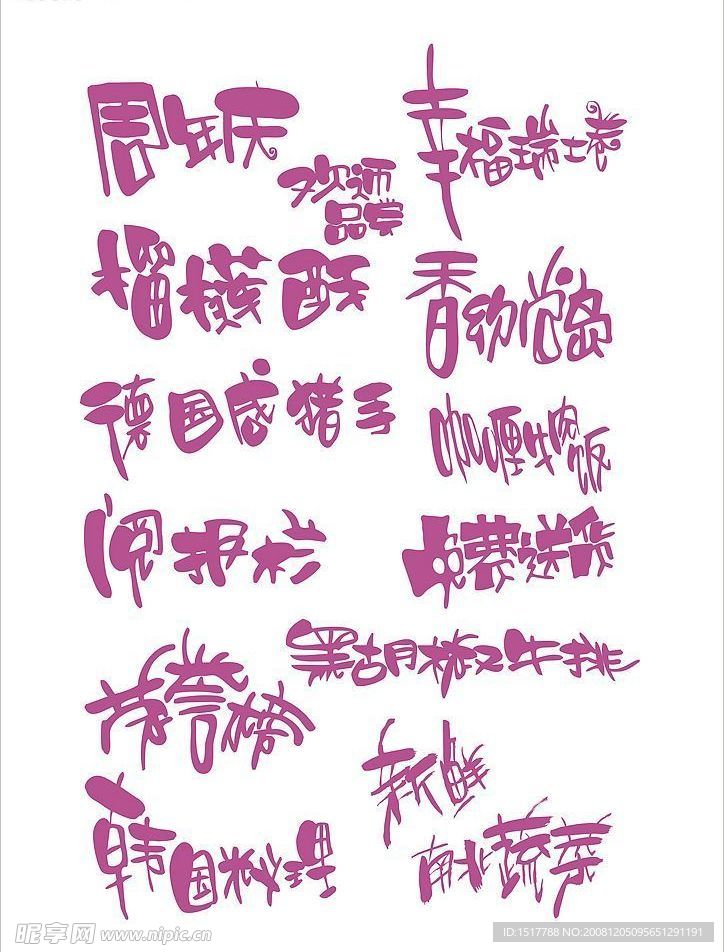 周年庆
幸福瑞士卷
欢迎
品尝
德国咸猪手
咖喱牛肉饭
阅报栏
免费送货
黑胡椒牛排
荣誉榜
新鲜
南北蔬菜
韩国料理
昵享网 www.nipic.cn
ID:1517788 NO:20081205095651291191